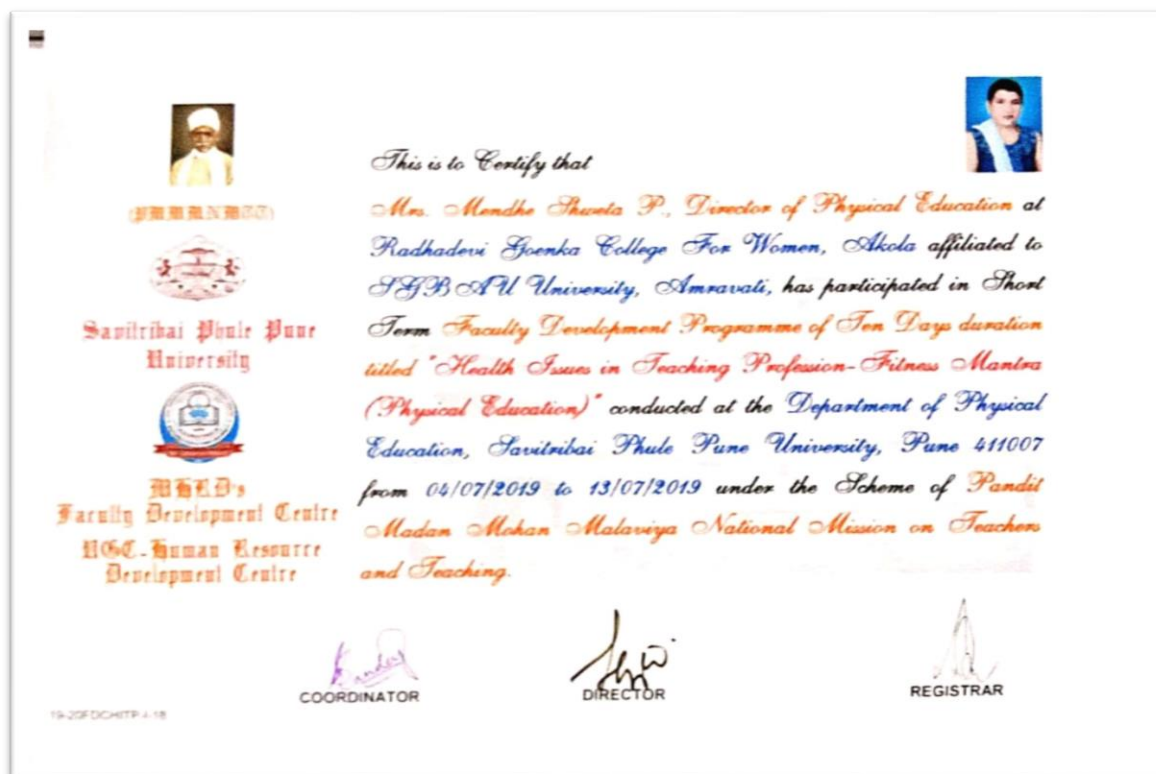 (PMMMNMTT)
Savitribai Phule Pune
University
MHRD's
Faculty Development Centre
UGC-Human Resource
Development Centre
This is to Certify that
Mrs. Mendhe Shweta P., Director of Physical Education at
Radhadevi Goenka College For Women, Akola affiliated to
SGBAU University, Amravati, has participated in Short
Term Faculty Development Programme of Ten Days duration
titled "Health Issues in Teaching Profession-Fitness Mantra
(Physical Education)" conducted at the Department of Physical
Education, Savitribai Phule Pune University, Pune 411007
from 04/07/2019 to 13/07/2019 under the Scheme of Pandit
Madan Mohan Malaviya National Mission on Teachers
and Teaching.
COORDINATOR
DIRECTOR
REGISTRAR